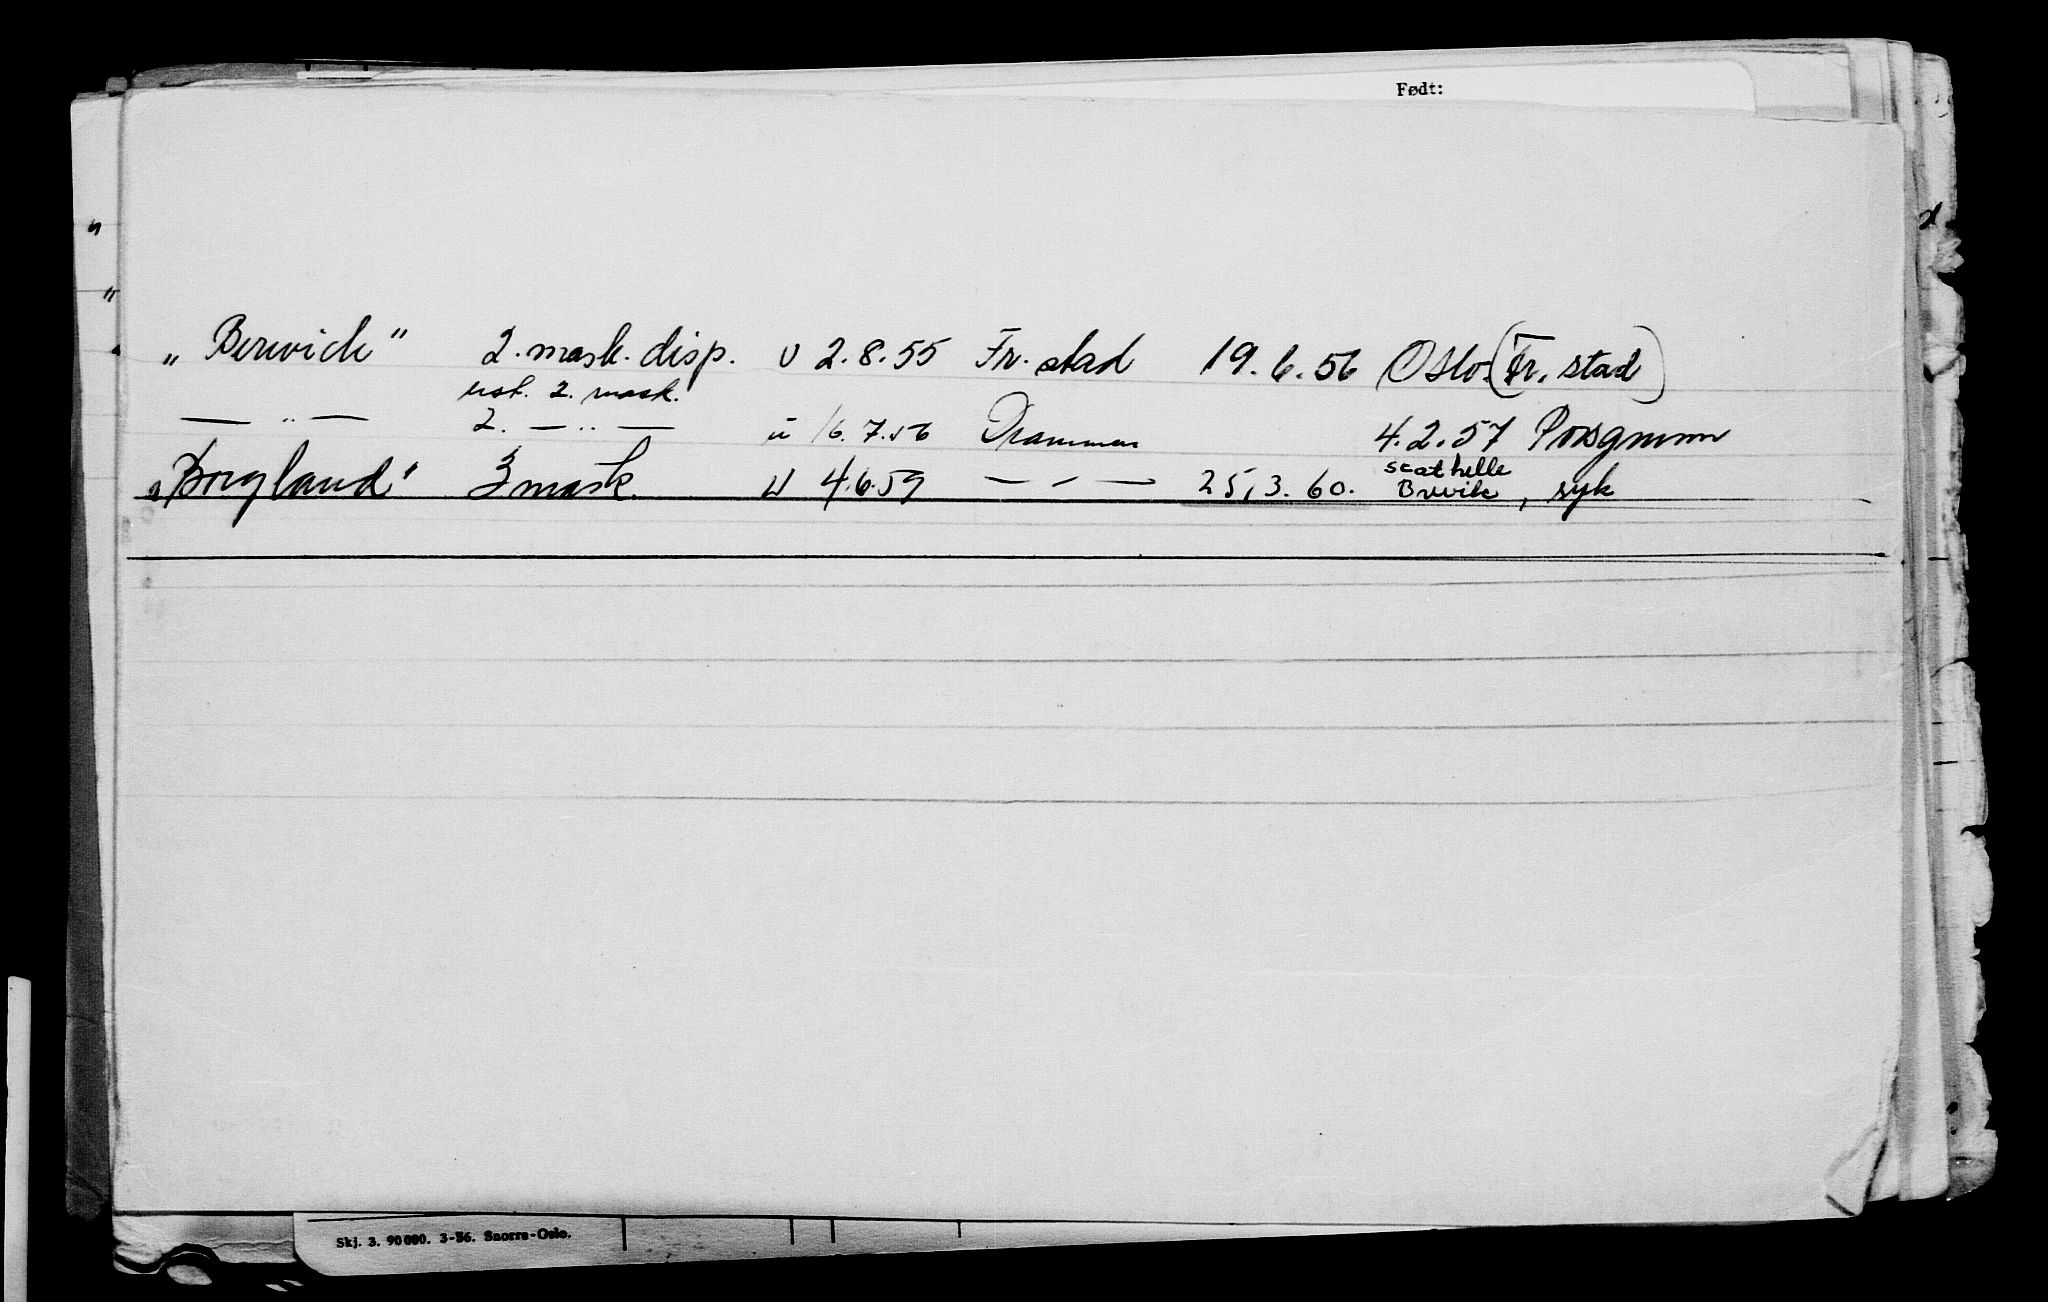 Født:
„ Berwick " 2. mask. disp. u 2.8.55 Fr. stad 19.6.56 Oslo. (Fr. stad)
ust. 2. mask.
— " — 2. — " — u 16.7.56 Drammen 4.2.57 Porsgrunn
„Borgland" 3 mask. u 4.6.59 — " — 25.3.60. Brevik, syk
scathelle
Skj. 3. 90 000. 3-56. Snorre-Oslo.